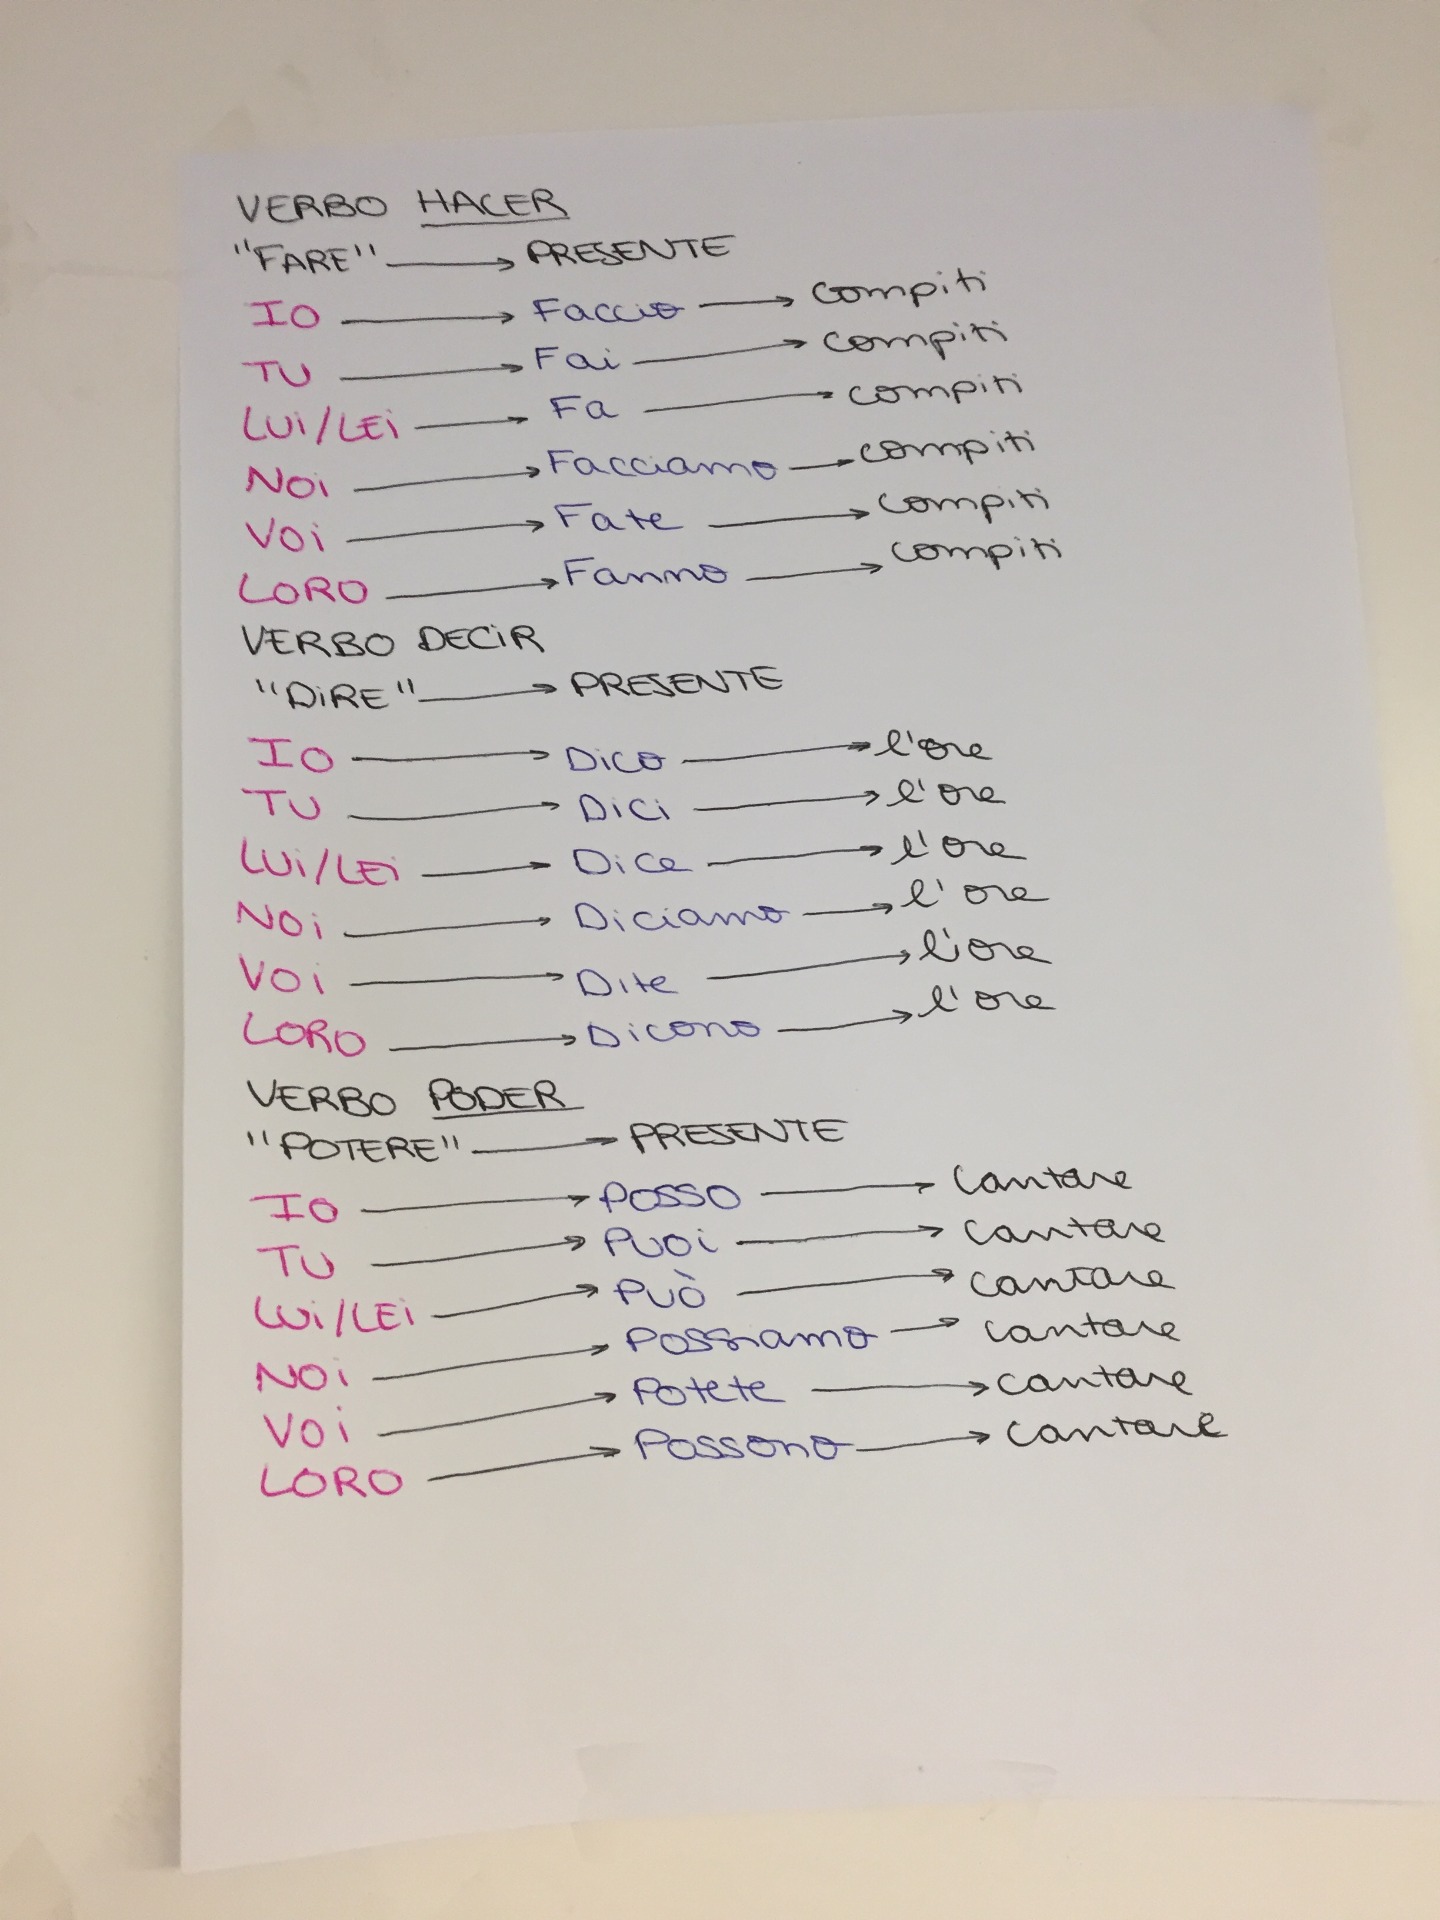 VERBO HACER
"FARE" → PRESENTE
IO → Faccio → compiti
TU → Fai → compiti
LUI/LEI → Fa → compiti
NOI → Facciamo → compiti
VOI → Fate → compiti
LORO → Fanno → compiti
VERBO DECIR
"DIRE" → PRESENTE
IO → Dico → l'ore
TU → Dici → l'ore
LUI/LEI → Dice → l'ore
NOI → Diciamo → l'ore
VOI → Dite → l'ore
LORO → Dicono → l'ore
VERBO PODER
"POTERE" → PRESENTE
IO → POSSO → cantare
TU → PUOI → cantare
LUI/LEI → PUÒ → cantare
NOI → Possiamo → cantare
VOI → Potete → cantare
LORO → Possono → cantare